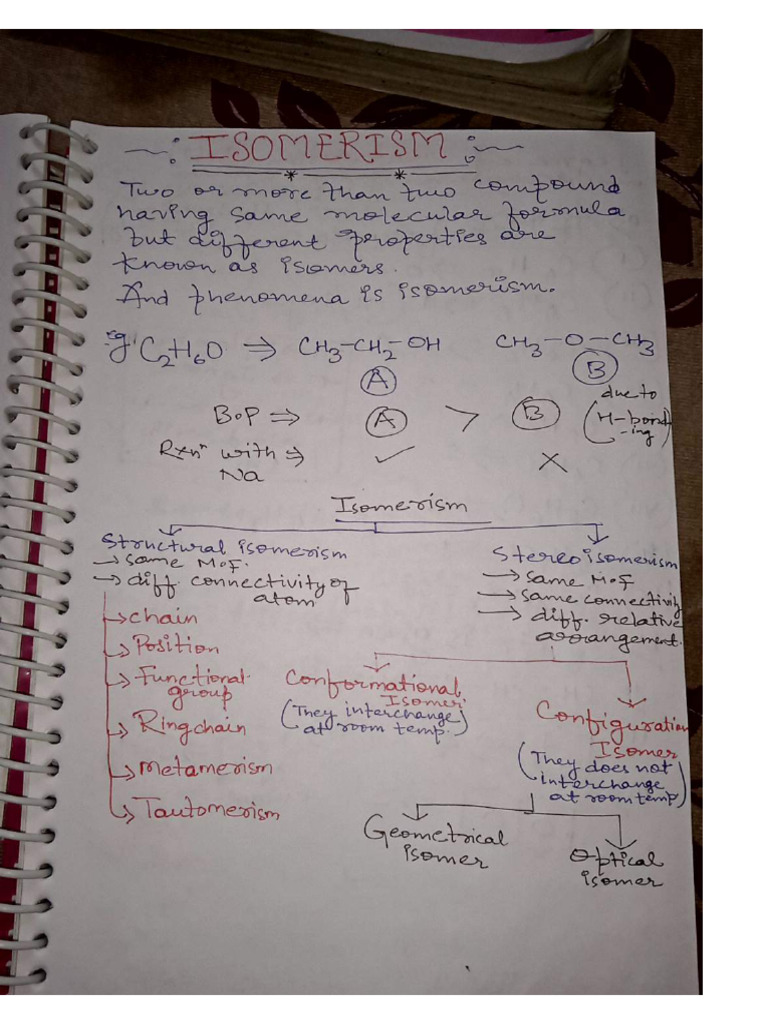 ISOMERISM
Two or more than two compound
having same molecular formula
but different properties are
known as isomers.
And phenomena is isomerism.
eg. C2H6O ⇒ CH3-CH2-OH CH3-O-CH3
A B
B.P ⇒ A > B due to (H-bond-ing)
Rxn with ⇒ ✓ ×
Na
Isomerism
Structural isomerism
→ same M.F.
→ diff. connectivity of
atom
→ chain
→ Position
→ Functional
group
→ Ringchain
→ Metamerism
→ Tautomerism
Stereoisomerism
→ same M.F
→ same connectivity
→ diff. relative
arrangement.
Conformational
Isomer
(They interchange
at room temp.)
Configuration
Isomer
(They does not
interchange
at room temp)
Geometrical
isomer
Optical
isomer